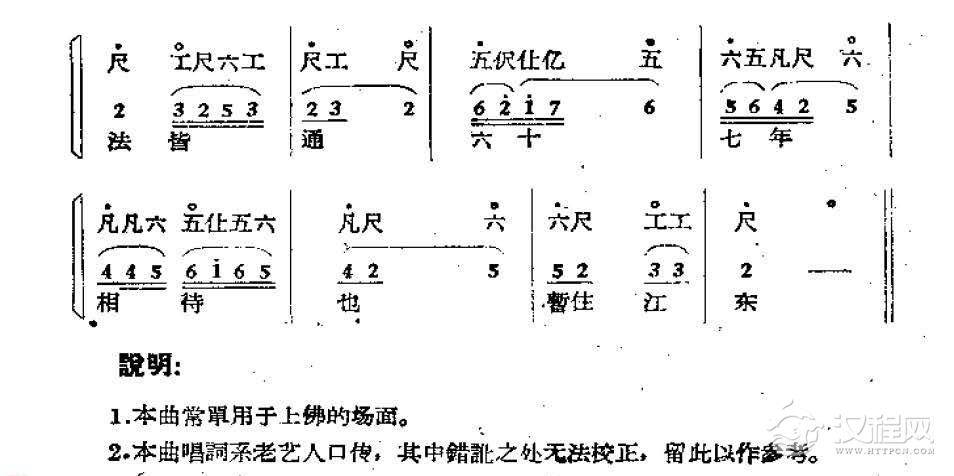 尺 工尺六工 尺工 尺 五伬仩亿 五 六五凡尺 六
2 3 2 5 3 2 3 2 6 2 1 7 6 5 6 4 2 5
法 皆 通 六 十 七 年
凡凡六 五仩五六 凡尺 六 六尺 工工 尺
4 4 5 6 1 6 5 4 2 5 5 2 3 3 2 —
相 待 也 暫住 江 东
說明:
1.本曲常單用于上佛的场面。
2.本曲唱詞系老艺人口传，其中錯訛之处无法校正，留此以作参考。
汉程网
HTTPCN.COM